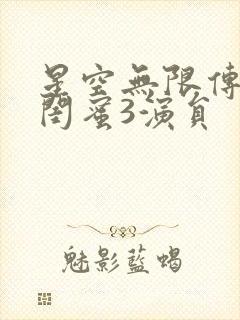 星空無限傳
閨蜜3演員
魅影藍蝎